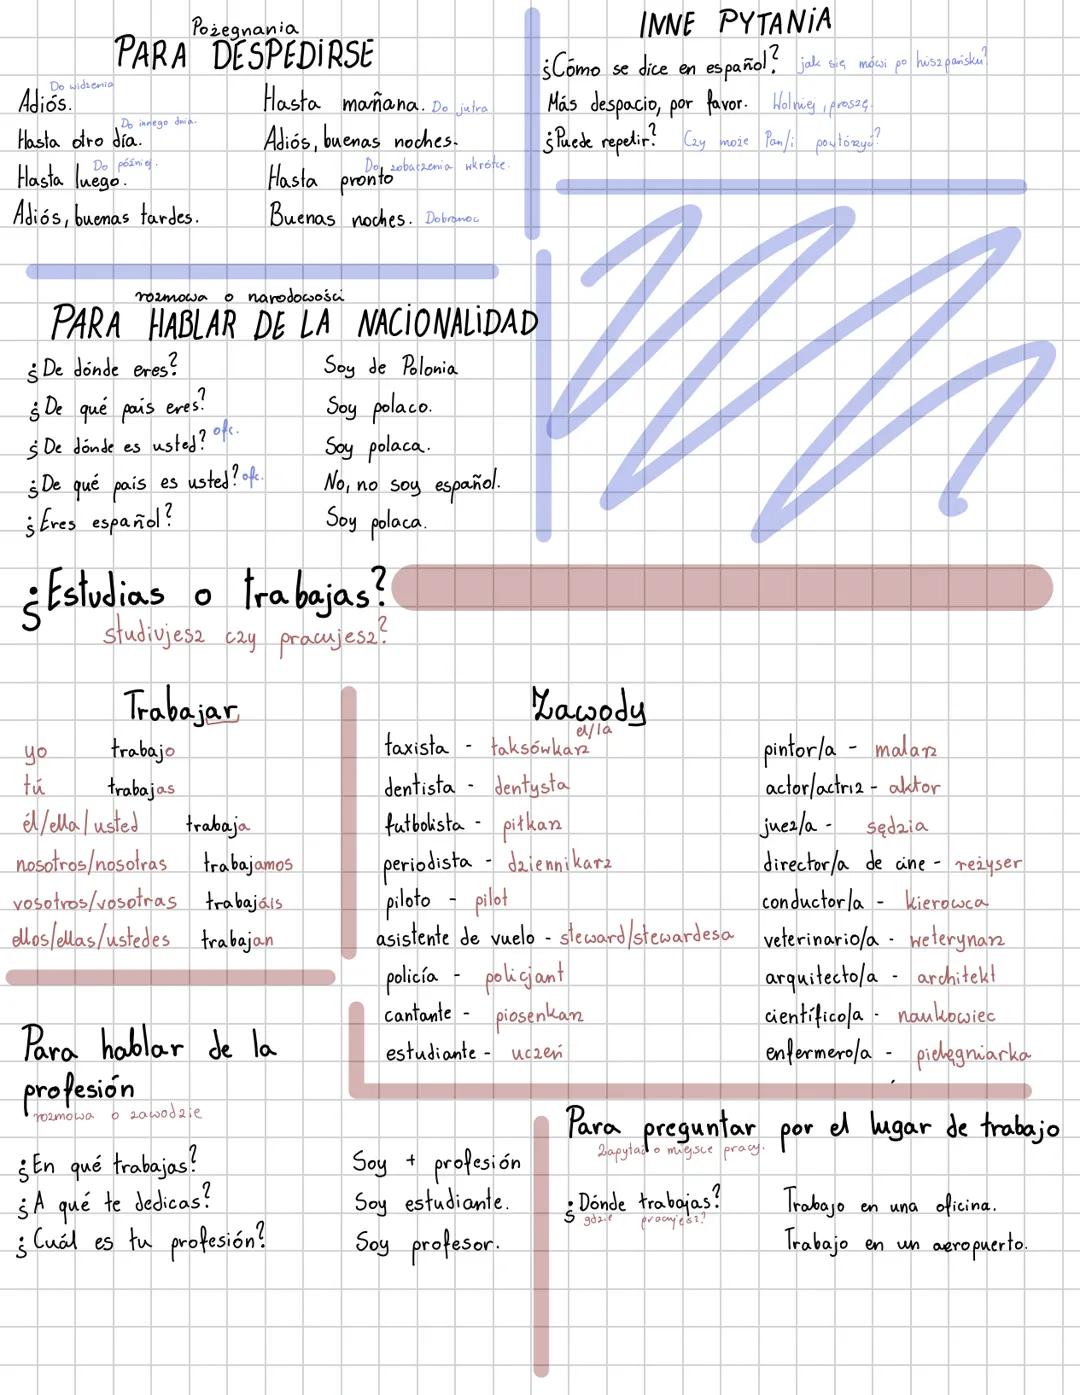 Pożegnania
PARA DESPEDIRSE
Do widzenia
Adiós.
Do innego dnia.
Hasta otro día.
Do później.
Hasta luego.
Adiós, buenas tardes.
Hasta mañana. Do jutra
Adiós, buenas noches.
Do zobaczenia wkrótce.
Hasta pronto
Buenas noches. Dobranoc
INNE PYTANIA
¿Cómo se dice en español? jak się mówi po hiszpańsku?
Más despacio, por favor. Wolniej, proszę.
¿Puede repetir? Czy może Pan/i powtórzyć?
rozmowa o narodowości
PARA HABLAR DE LA NACIONALIDAD
¿De dónde eres? Soy de Polonia
¿De qué país eres? Soy polaco.
¿De dónde es usted? ofc. Soy polaca.
¿De qué país es usted? ofc. No, no soy español.
¿Eres español? Soy polaca.
¿Estudias o trabajas?
studiujesz czy pracujesz?
Trabajar
yo trabajo
tú trabajas
él/ella/usted trabaja
nosotros/nosotras trabajamos
vosotros/vosotras trabajáis
ellos/ellas/ustedes trabajan
Zawody
el/la
taxista - taksówkarz
dentista - dentysta
futbolista - piłkarz
periodista - dziennikarz
piloto - pilot
asistente de vuelo - steward/stewardesa
policía - policjant
cantante - piosenkarz
estudiante - uczeń
pintor/a - malarz
actor/actriz - aktor
juez/a - sędzia
director/a de cine - reżyser
conductor/a - kierowca
veterinario/a - weterynarz
arquitecto/a - architekt
científico/a - naukowiec
enfermero/a - pielęgniarka
Para hablar de la
profesión
rozmowa o zawodzie
¿En qué trabajas? Soy + profesión
¿A qué te dedicas? Soy estudiante.
¿Cuál es tu profesión? Soy profesor.
Para preguntar por el lugar de trabajo
Zapytać o miejsce pracy.
¿Dónde trabajas? Trabajo en una oficina.
gdzie pracujesz?
Trabajo en un aeropuerto.